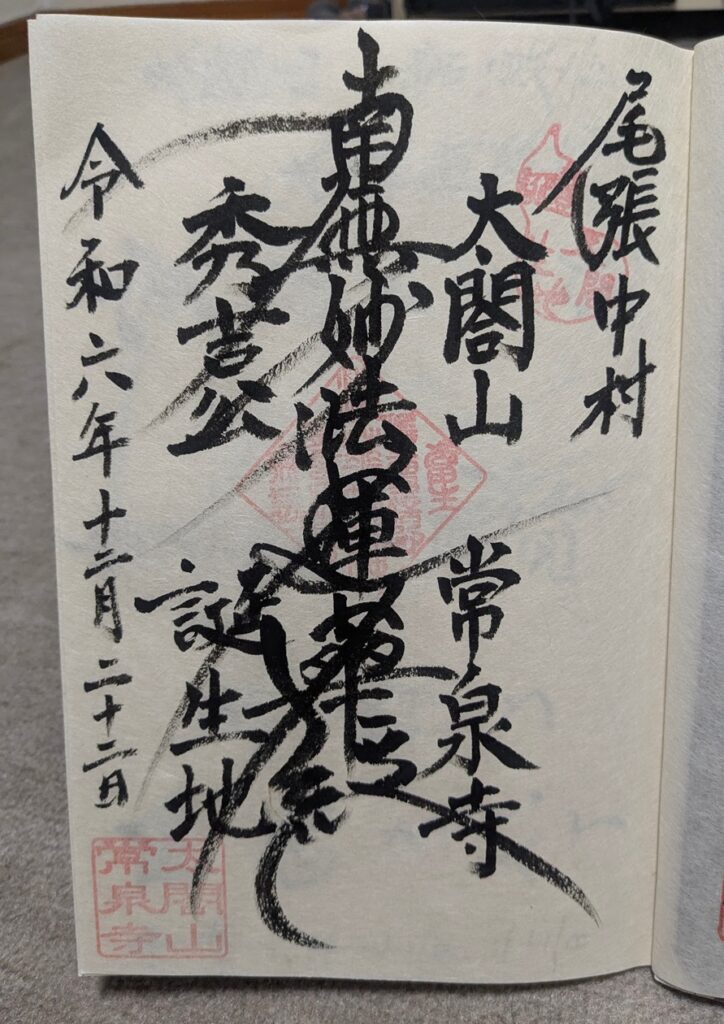 尾張中村
太閤山 常泉寺
南無妙法蓮華経
秀吉公 誕生地
令和六年十二月二十二日
太閤山
常泉寺